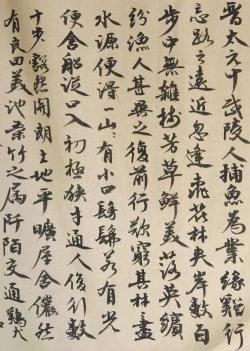 晉太元中武陵人捕魚為業緣谿行
忘路之遠近忽逢桃花林夾岸數百
步中無雜樹芳草鮮美落英繽
紛漁人甚異之復前行欲窮其林盡
水源便得一山〻有小口髣髴若有光
便舍船從口入初極狹才通人復行數
十步豁然開朗土地平曠屋舍儼然
有良田美池桑竹之屬阡陌交通鷄犬